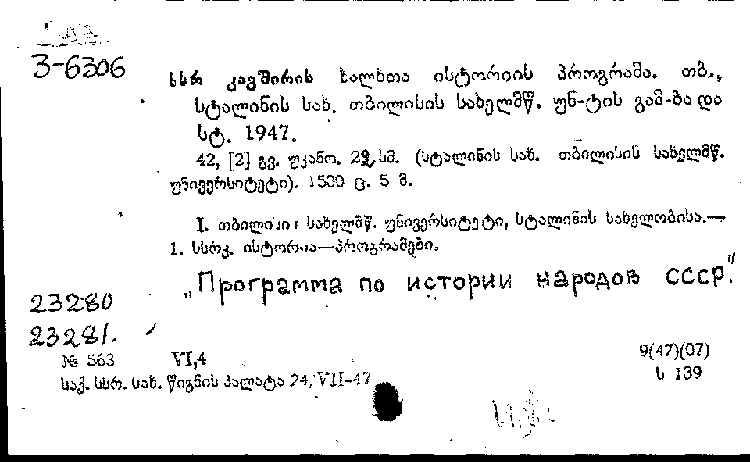 3-6306
სსრ კავშირის ხალხთა ისტორიის პროგრამა. თბ.,
სტალინის სახ. თბილისის სახელმწ. უნ-ტის გამ-ბა და
სტ. 1947.
42, [2] გვ. უკანო. 22 სმ. (სტალინის სახ. თბილისის სახელმწ.
უნივერსიტეტი). 1500 ც. 5 მ.
I. თბილისი სახელმწ. უნივერსიტეტი, სტალინის სახელობისა.—
1. სსრკ. ისტორია—პროგრამები.
„Программа по истории народов СССР."
23280
23281.
№ 563 VI,4 9(47)(07)
საქ. სსრ. სახ. წიგნის პალატა 24, VII-47 ს 139